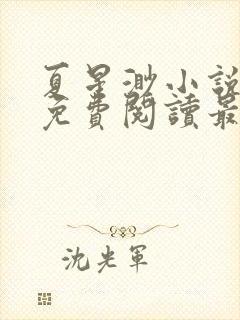 夏星渺小說
免費閱讀最
沈光軍